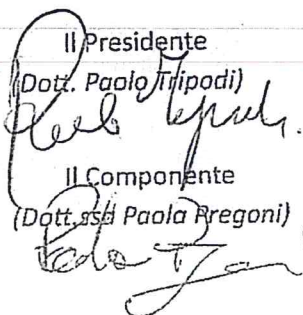 Il Presidente
(Dott. Paolo Tripodi)
Il Componente
(Dott.ssa Paola Pregoni)